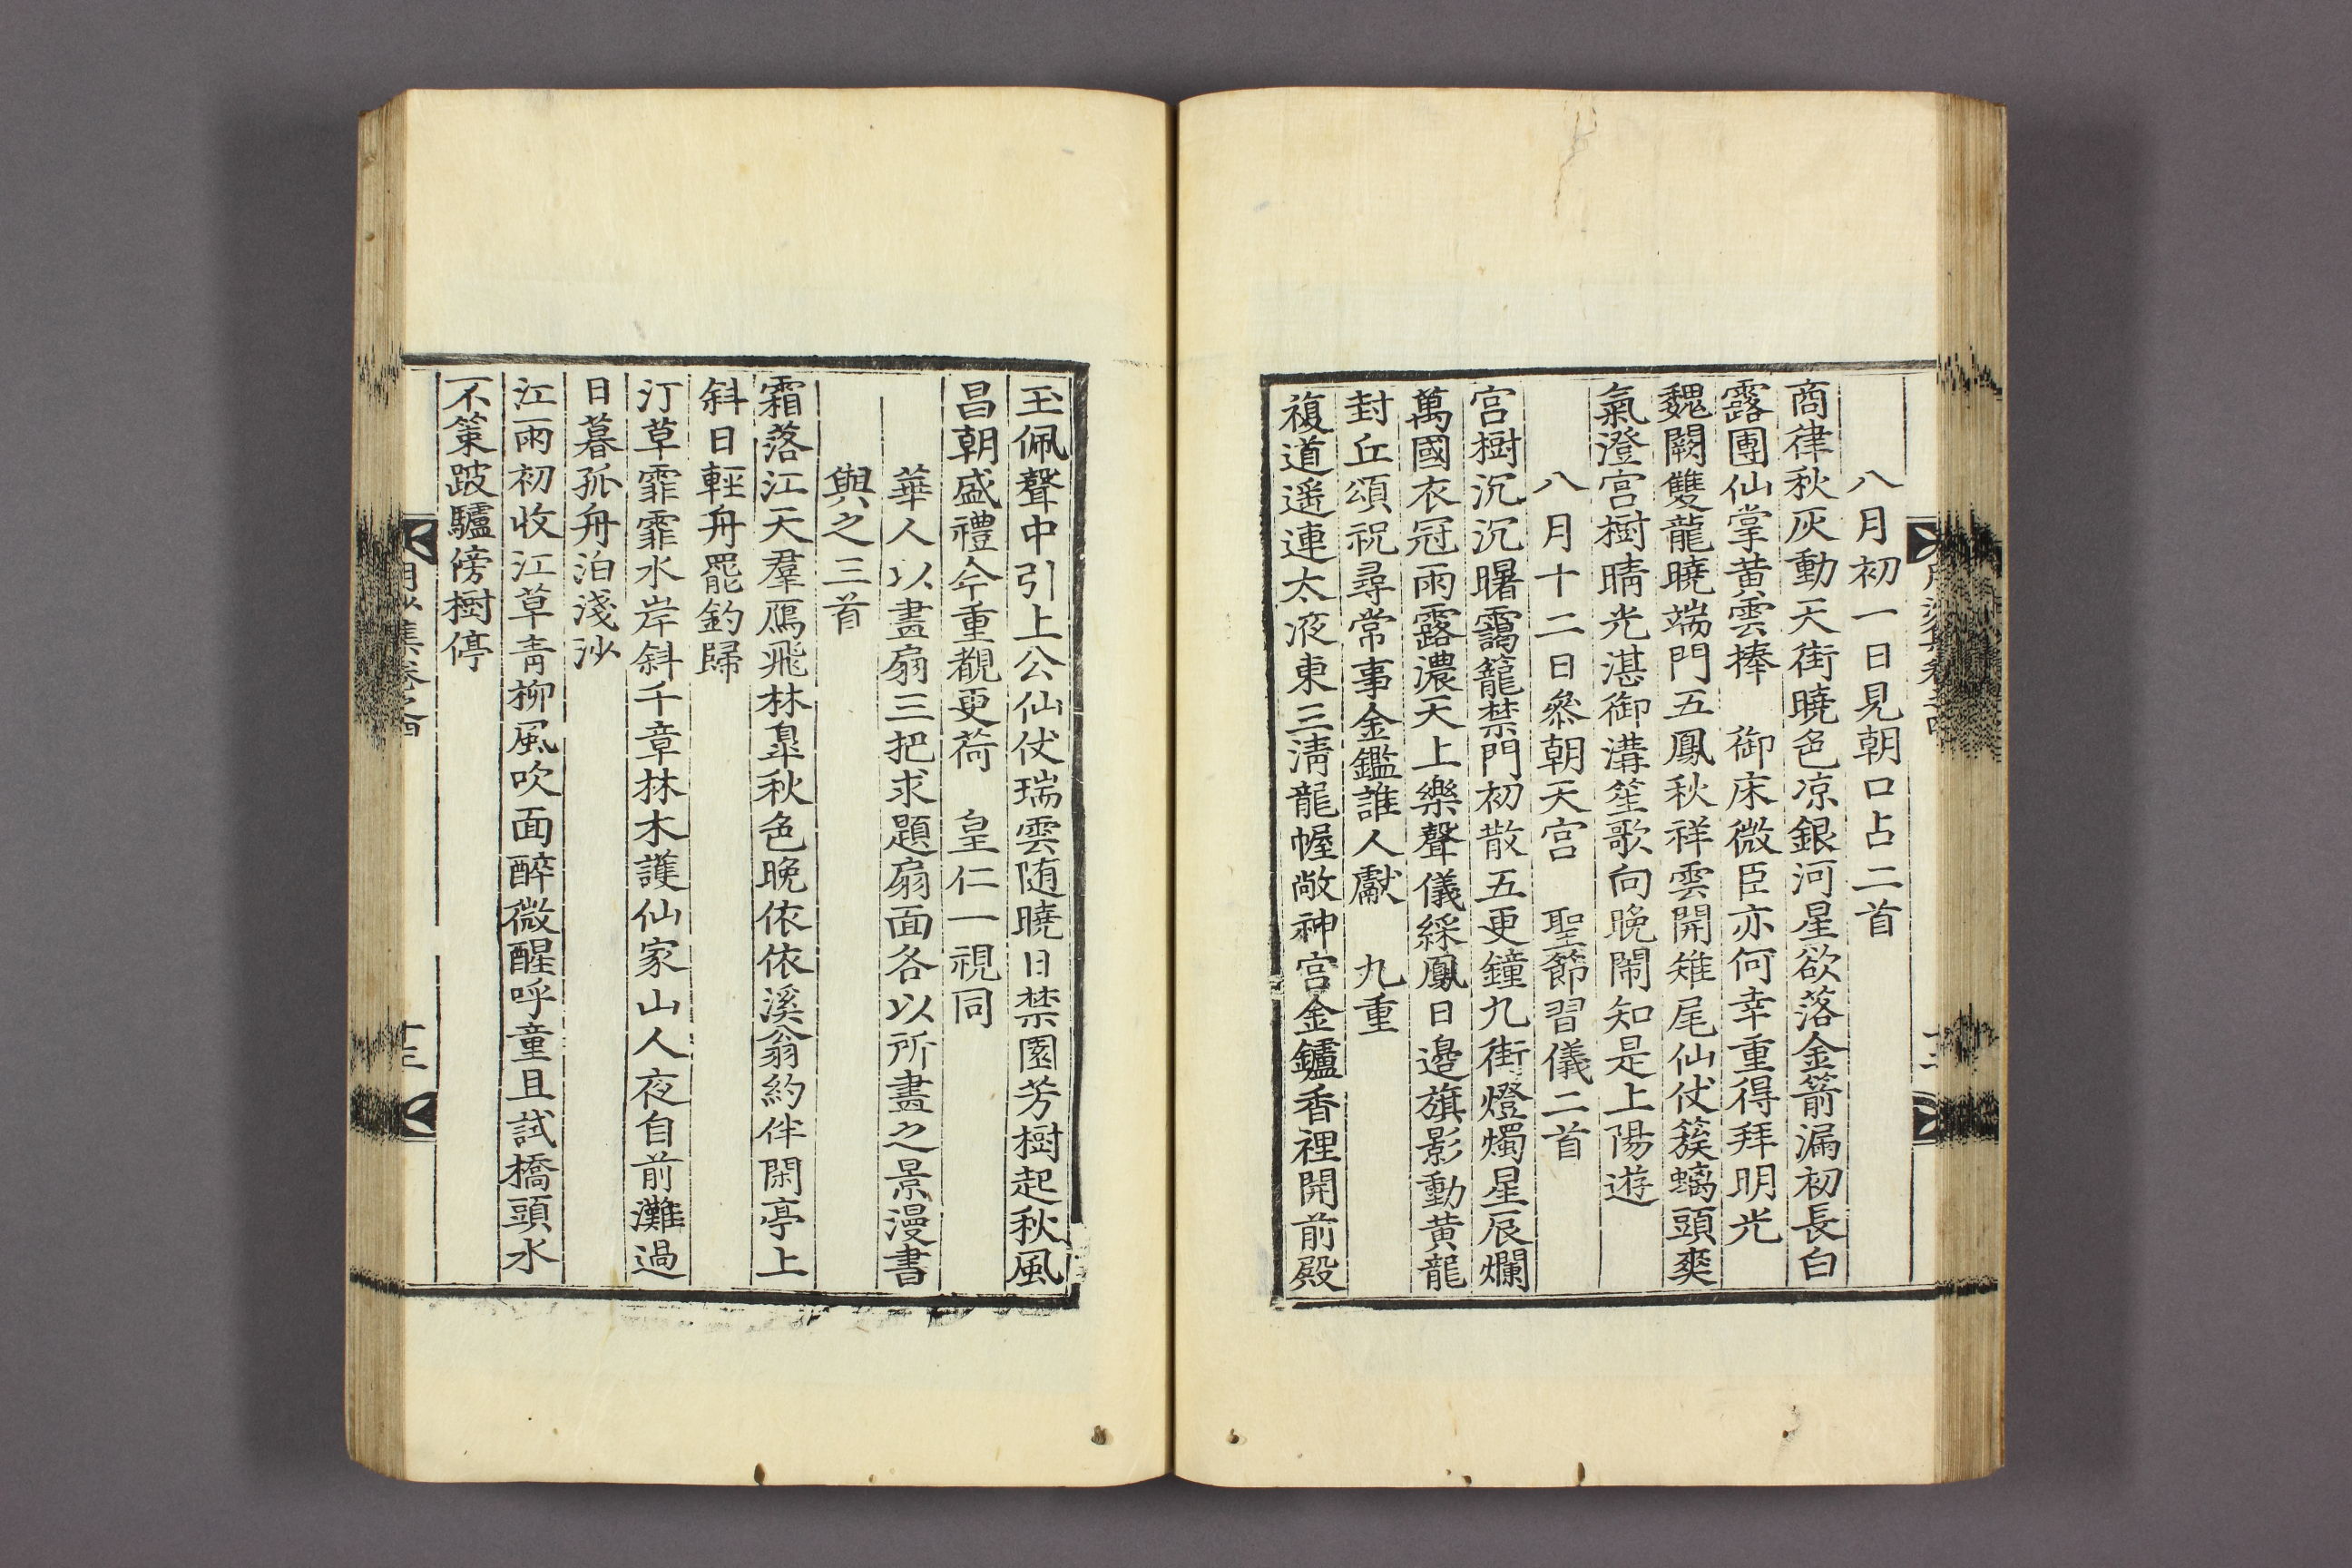 八月初一日見朝口占二首
商律秋灰動天街曉色凉銀河星欲落金箭漏初長白
露團仙掌黄雲捧　御床微臣亦何幸重得拜明光
魏闕雙龍曉端門五鳳秋祥雲開雉尾仙仗簇螭頭爽
氣澄宮樹晴光湛御溝笙歌向晚鬧知是上陽遊
八月十二日叅朝天宮　聖節習儀二首
宮樹沉沉曙靄籠禁門初散五更鐘九街燈燭星辰爛
萬國衣冠雨露濃天上樂聲儀綵鳳日邊旗影動黄龍
封丘頌祝尋常事金鑑誰人獻　九重
複道遥連太液東三淸龍幄敞神宮金鑪香裡開前殿
玉佩聲中引上公仙仗瑞雲随曉日禁園芳樹起秋風
昌朝盛禮今重覩更荷　皇仁一視同
華人以畫扇三把求題扇面各以所畫之景漫書
與之三首
霜落江天羣鴈飛林皐秋色晩依依溪翁約伴閑亭上
斜日輕舟罷釣歸
汀草霏霏水岸斜千章林木護仙家山人夜自前灘過
日暮孤舟泊淺沙
江雨初收江草靑柳風吹面醉微醒呼童且試橋頭水
不策跛驢傍樹停
月沙集卷之四
十三